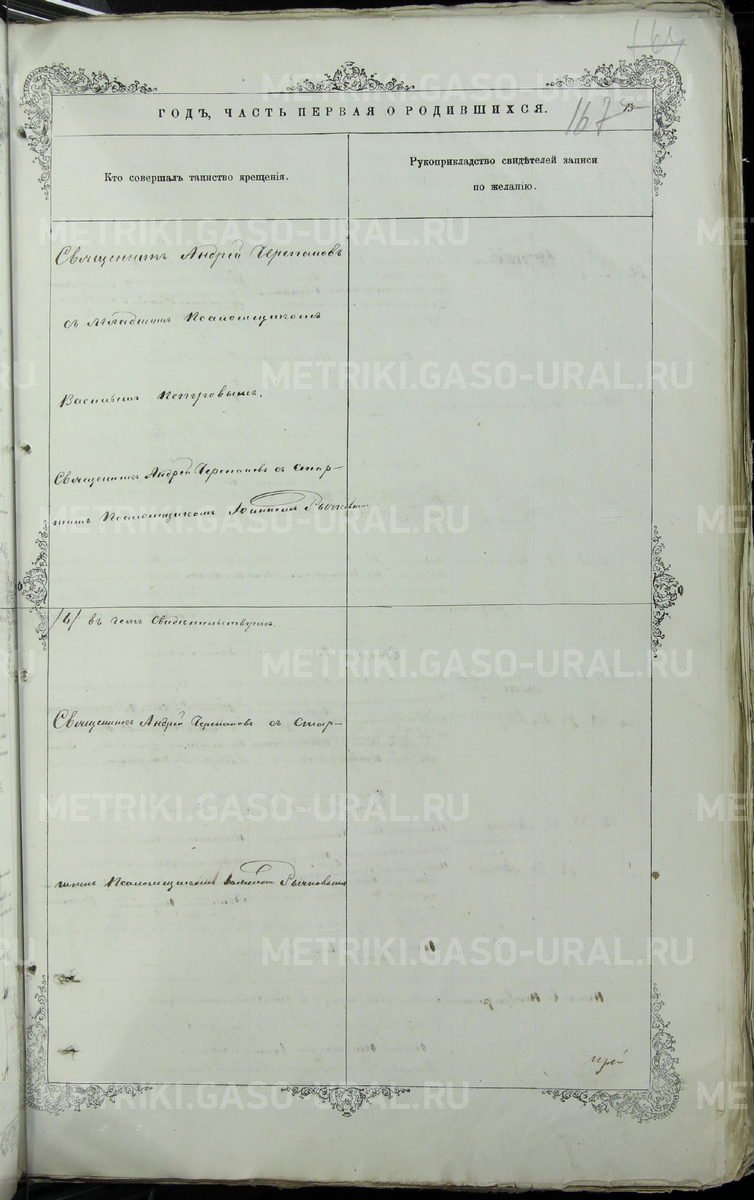 164
ГОДЪ, ЧАСТЬ ПЕРВАЯ О РОДИВШИХСЯ.
167
Кто совершалъ таинство крещенія.
Рукоприкладство свидѣтелей записи
по желанію.
Священникъ Андрей Черепановъ
съ младшимъ Псаломщикомъ
Василіемъ Петровымъ.
Священникъ Андрей Черепановъ съ стар-
шимъ Псаломщикомъ Іоанномъ Рычковымъ
въ чемъ Свидѣтельствуемъ
Священникъ Андрей Черепановъ съ стар-
шимъ Псаломщикомъ Рычковымъ
METRIKI.GASO-URAL.RU